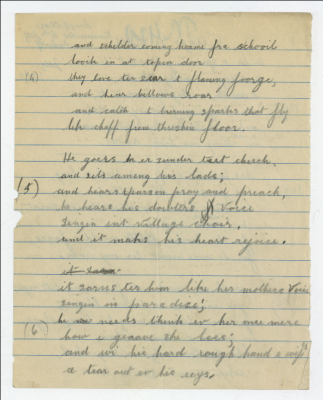 and scholder coming hoame fra schooil
looik in at topen door
(4) they love ter sear t flaming foorge,
and hear bellows roar
and catch t burning sparks that fly
like chaff from threshin floor.
He goers on er sunder ter church,
and sets among his lads;
(5) and hears tparson pray and preach,
he hears his doubters voice
singin int village choir,
and it maks his heart rejoice.
it
it sarnes ter him like her mothers Voice
singin in paradise;
he needs think er her once mere
(6) how i graave she laes;
and wi his hard rough hand e wips
a tear out er his eeys.